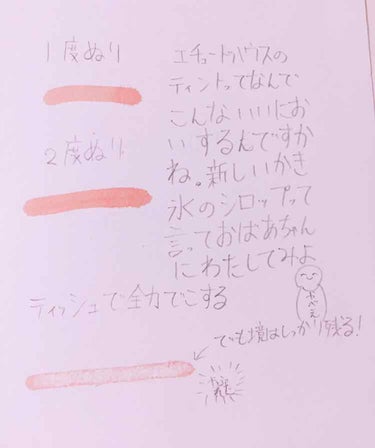 1度ぬり
2度ぬり
エチュードハウスの
ティントってなんで
こんないいにお
いするんですか
ね。新しいかき
氷のシロップって
言っておばあちゃん
にわたしてみよ
やべぇ
ティッシュで全力でこする
でも境はしっかり残る!